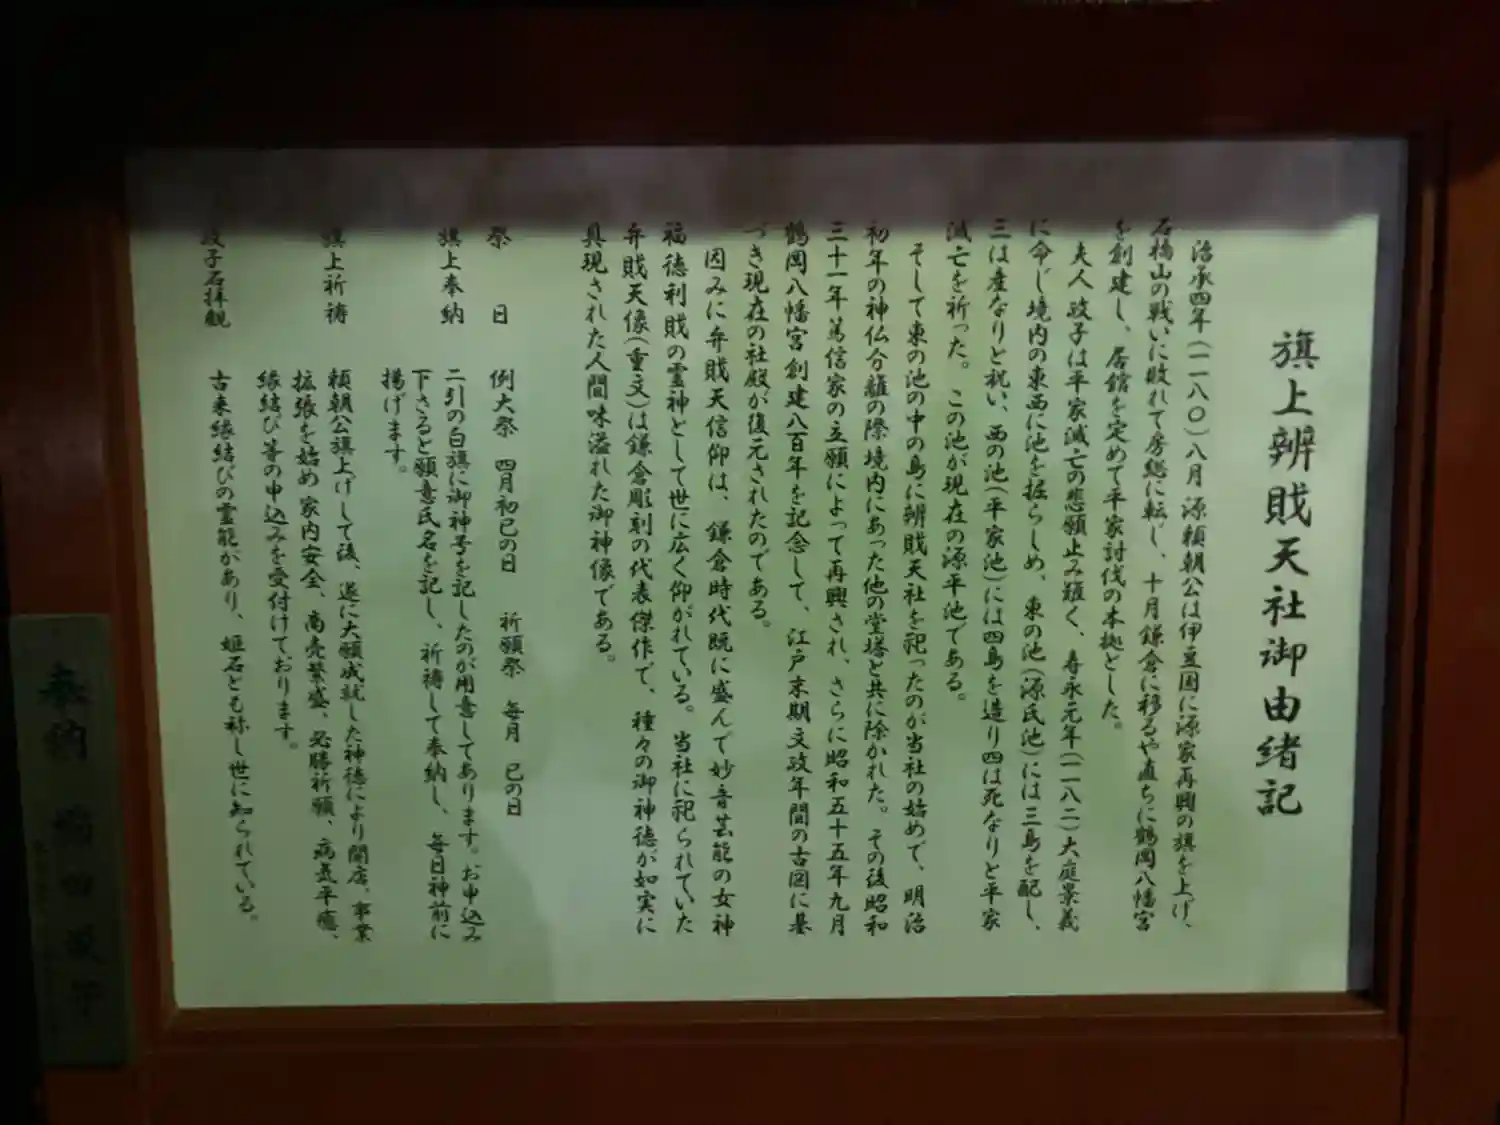 旗上辨財天社御由緒記
治承四年(一一八〇)八月源頼朝公は伊豆国に源家再興の旗を上げ、
石橋山の戦いに敗れて房総に転し、十月鎌倉に移るや直ちに鶴岡八幡宮
を創建し、居館を定めて平家討伐の本拠とした。
夫人政子は平家滅亡の悲願止み難く、寿永元年(一一八二)大庭景義
に命じ境内の東西に池を掘らしめ、東の池(源氏池)には三島を配し、
三は産なりと祝い、西の池(平家池)には四島を造り四は死なりと平家
滅亡を祈った。この池が現在の源平池である。
そして東の池の中の島に辨財天社を祀ったのが当社の始めで、明治
初年の神仏分離の際境内にあった他の堂塔と共に除かれた。その後昭和
三十一年篤信家の立願によって再興され、さらに昭和五十五年九月
鶴岡八幡宮創建八百年を記念して、江戸末期文政年間の古図に基
づき現在の社殿が復元されたのである。
因みに弁財天信仰は、鎌倉時代既に盛んで妙音芸能の女神
福徳利財の霊神として世に広く仰がれている。当社に祀られていた
弁財天像(重文)は鎌倉彫刻の代表傑作で、種々の御神徳が如実に
具現された人間味溢れた御神像である。
祭日 例大祭 四月初巳の日 祈願祭 毎月 巳の日
旗上奉納 二引の白旗に御神号を記したのが用意してあります。お申込み
下さると願意氏名を記し、祈祷して奉納し、毎日神前に
揚げます。
旗上祈祷 頼朝公旗上げして後、遂に大願成就した神徳により開店、事業
拡張を始め家内安全、商売繁盛、必勝祈願、病気平癒、
縁結び等の申込みを受付けております。
政子石拝観 古来縁結びの霊能があり、姫石とも称し世に知られている。
奉納